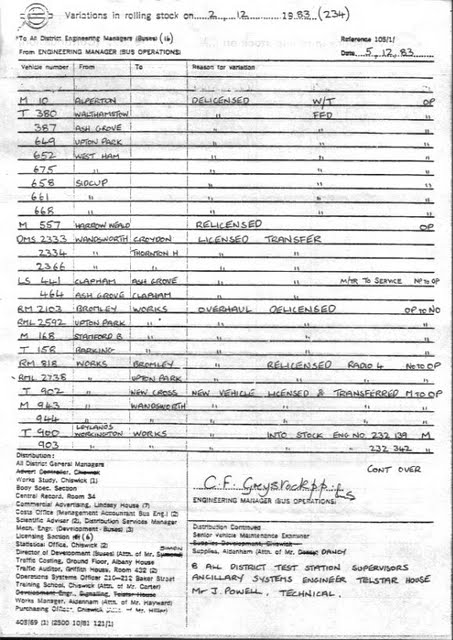 Variations in rolling stock on 2, 12 1983 (234)
*To All District Engineering Managers (Buses) (16)
Reference 105/1/
From ENGINEERING MANAGER (BUS OPERATIONS)
Date 5, 12, 83
Vehicle number From To Reason for variation
M 10 ALPERTON DELICENSED W/T OP
T 380 WALTHAMSTOW " FFD "
387 ASH GROVE " " "
649 UPTON PARK " " "
652 WEST HAM " " "
675 " " " "
658 SIDCUP " " "
661 " " " "
668 " " " "
M 557 HARROW WEALD RELICENSED OP
DMS 2333 WANDSWORTH CROYDON LICENSED TRANSFER
2334 " THORNTON H " "
2366 " " " "
LS 441 CLAPHAM ASH GROVE " " M/TR TO SERVICE No TO OP
464 ASH GROVE CLAPHAM " " " "
RM 2103 BROMLEY WORKS OVERHAUL DELICENSED OP TO NO
RML 2592 UPTON PARK " " " "
M 168 STAMFORD B " " " "
T 158 BARKING " " " "
RM 818 WORKS BROMLEY " RELICENSED RADIO 4 No TO OP
RML 2738 " UPTON PARK " " " "
T 902 " NEW CROSS NEW VEHICLE LICENSED & TRANSFERRED M TO OP
M 943 " WANDSWORTH " " " "
944 " " " " " "
T 900 LEYLANDS WORKINGTON WORKS " INTO STOCK ENG NO. 232 139 M
903 " " " " 232 342 "
CONT OVER
Distribution:
All District General Managers
Advert Controller, Chiswick
Works Study, Chiswick (1)
Body Spec. Section
Central Record, Room 34
Commercial Advertising, Lindsey House (7)
Costs Office (Management Accountant Bus Eng.) (2)
Scientific Adviser (2), Distribution Services Manager
Mech. Engr. (Development - Buses) (3)
Licensing Section (6)
Statistical Office, Chiswick (2)
Director of Development (Buses) (Attn. of Mr.
Traffic Costing, Ground Floor, Albany House
Traffic Auditor, Griffith House, Room 422 (2)
Operations Systems Officer 210—212 Baker Street
Training School, Chiswick (Attn. of Mr. Carter)
Development Engr., Signalling, Telstar House
Works Manager, Aldenham (Attn. of Mr. Hayward)
Purchasing Officer, Chiswick (Attn. of Mr. Hiller)
403/69 (1) (2500 10/81 121/1)
C. F. Greystock pp
ENGINEERING MANAGER (BUS OPERATIONS)
Distribution Continued
Senior Vehicle Maintenance Examiner
Supplies, Aldenham (Attn. of Mr. DANDY
8 ALL DISTRICT TEST STATION SUPERVISORS
ANCILLARY SYSTEMS ENGINEER TELSTAR HOUSE
Mr J. POWELL. TECHNICAL.